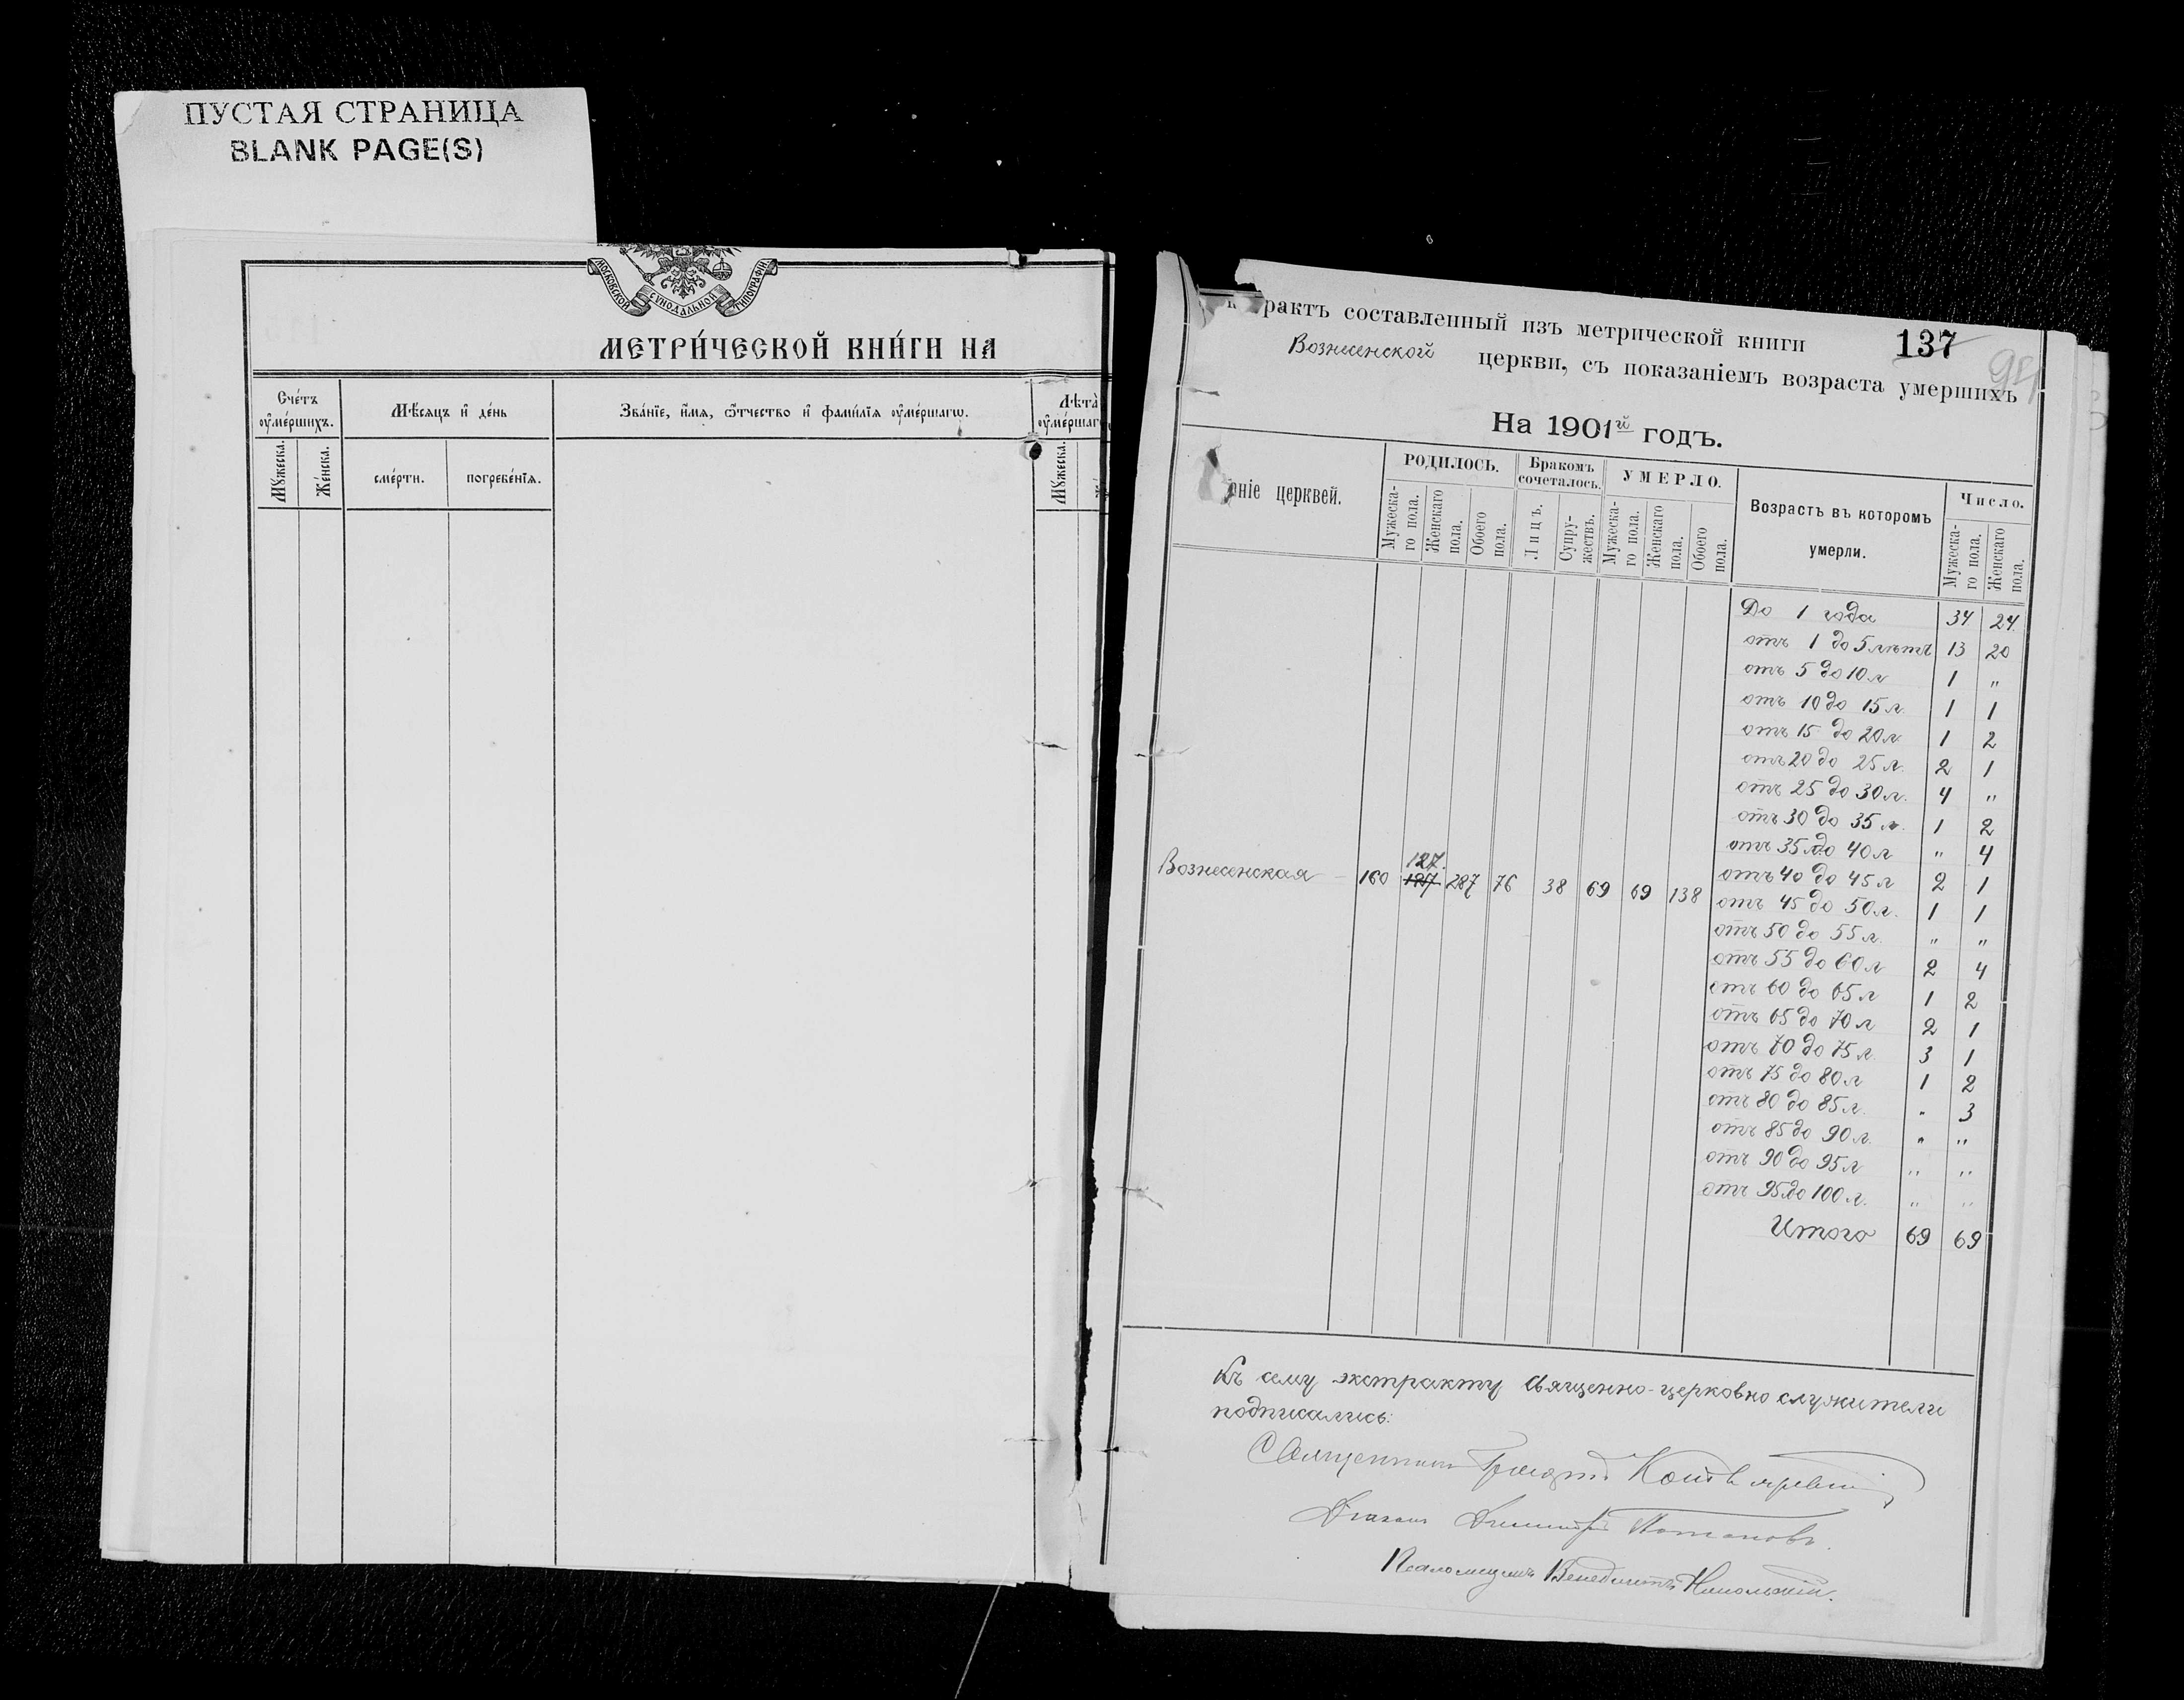 ПУСТАЯ СТРАНИЦА
BLANK PAGE(S)
МОСКОВСКОЙ СѴНОДАЛЬНОЙ ТИПОГРАФІИ
МЕТРИ́ЧЕСКОЙ КНИ́ГИ НА
Счéтъ ᲂу҆мéршихъ.
Мѣ́сяцъ и҆ дéнь
Звáнїе, и҆́мя, ѻ҆́тчество и҆ фами́лїя ᲂу҆мéршагѡ.
Лѣтà ᲂу҆мéршаг
Мꙋ́жеска.
Жéнска.
смéрти.
погребéнїя.
Мꙋ́жеска.
рактъ составленный изъ метрической книги
137
Вознесенской церкви, съ показаніемъ возраста умершихъ
На 1901й годъ.
аніе церквей.
РОДИЛОСЬ.
Бракомъ сочеталось.
УМЕРЛО.
Возрастъ въ которомъ умерли.
Число.
Мужеска-го пола.
Женскаго пола.
Обоего пола.
Лицъ.
Супру-жествъ.
Мужеска-го пола.
Женскаго пола.
Обоего пола.
Мужеска-го пола.
Женскаго пола.
До 1 года 34 24
отъ 1 до 5 лѣтъ 13 20
отъ 5 до 10 л 1 "
отъ 10 до 15 л. 1 1
отъ 15 до 20 л 1 2
отъ 20 до 25 л. 2 1
отъ 25 до 30 л. 4 "
отъ 30 до 35 л. 1 2
отъ 35 до 40 л " 4
127.
Вознесенская 160 287 76 38 69 69 138
отъ 40 до 45 л 2 1
отъ 45 до 50 л. 1 1
отъ 50 до 55 л. " "
отъ 55 до 60 л 2 4
отъ 60 до 65 л 1 2
отъ 65 до 70 л 2 1
отъ 70 до 75 л. 3 1
отъ 75 до 80 л 1 2
отъ 80 до 85 л. " 3
отъ 85 до 90 л. " "
отъ 90 до 95 л " "
отъ 95 до 100 л. " "
Итого 69 69
Къ сему экстракту священно-церковно служители
подписались:
Священникъ
Діаконъ Димитрій Потаповъ.
Псаломщикъ Венедиктъ Никольскій.